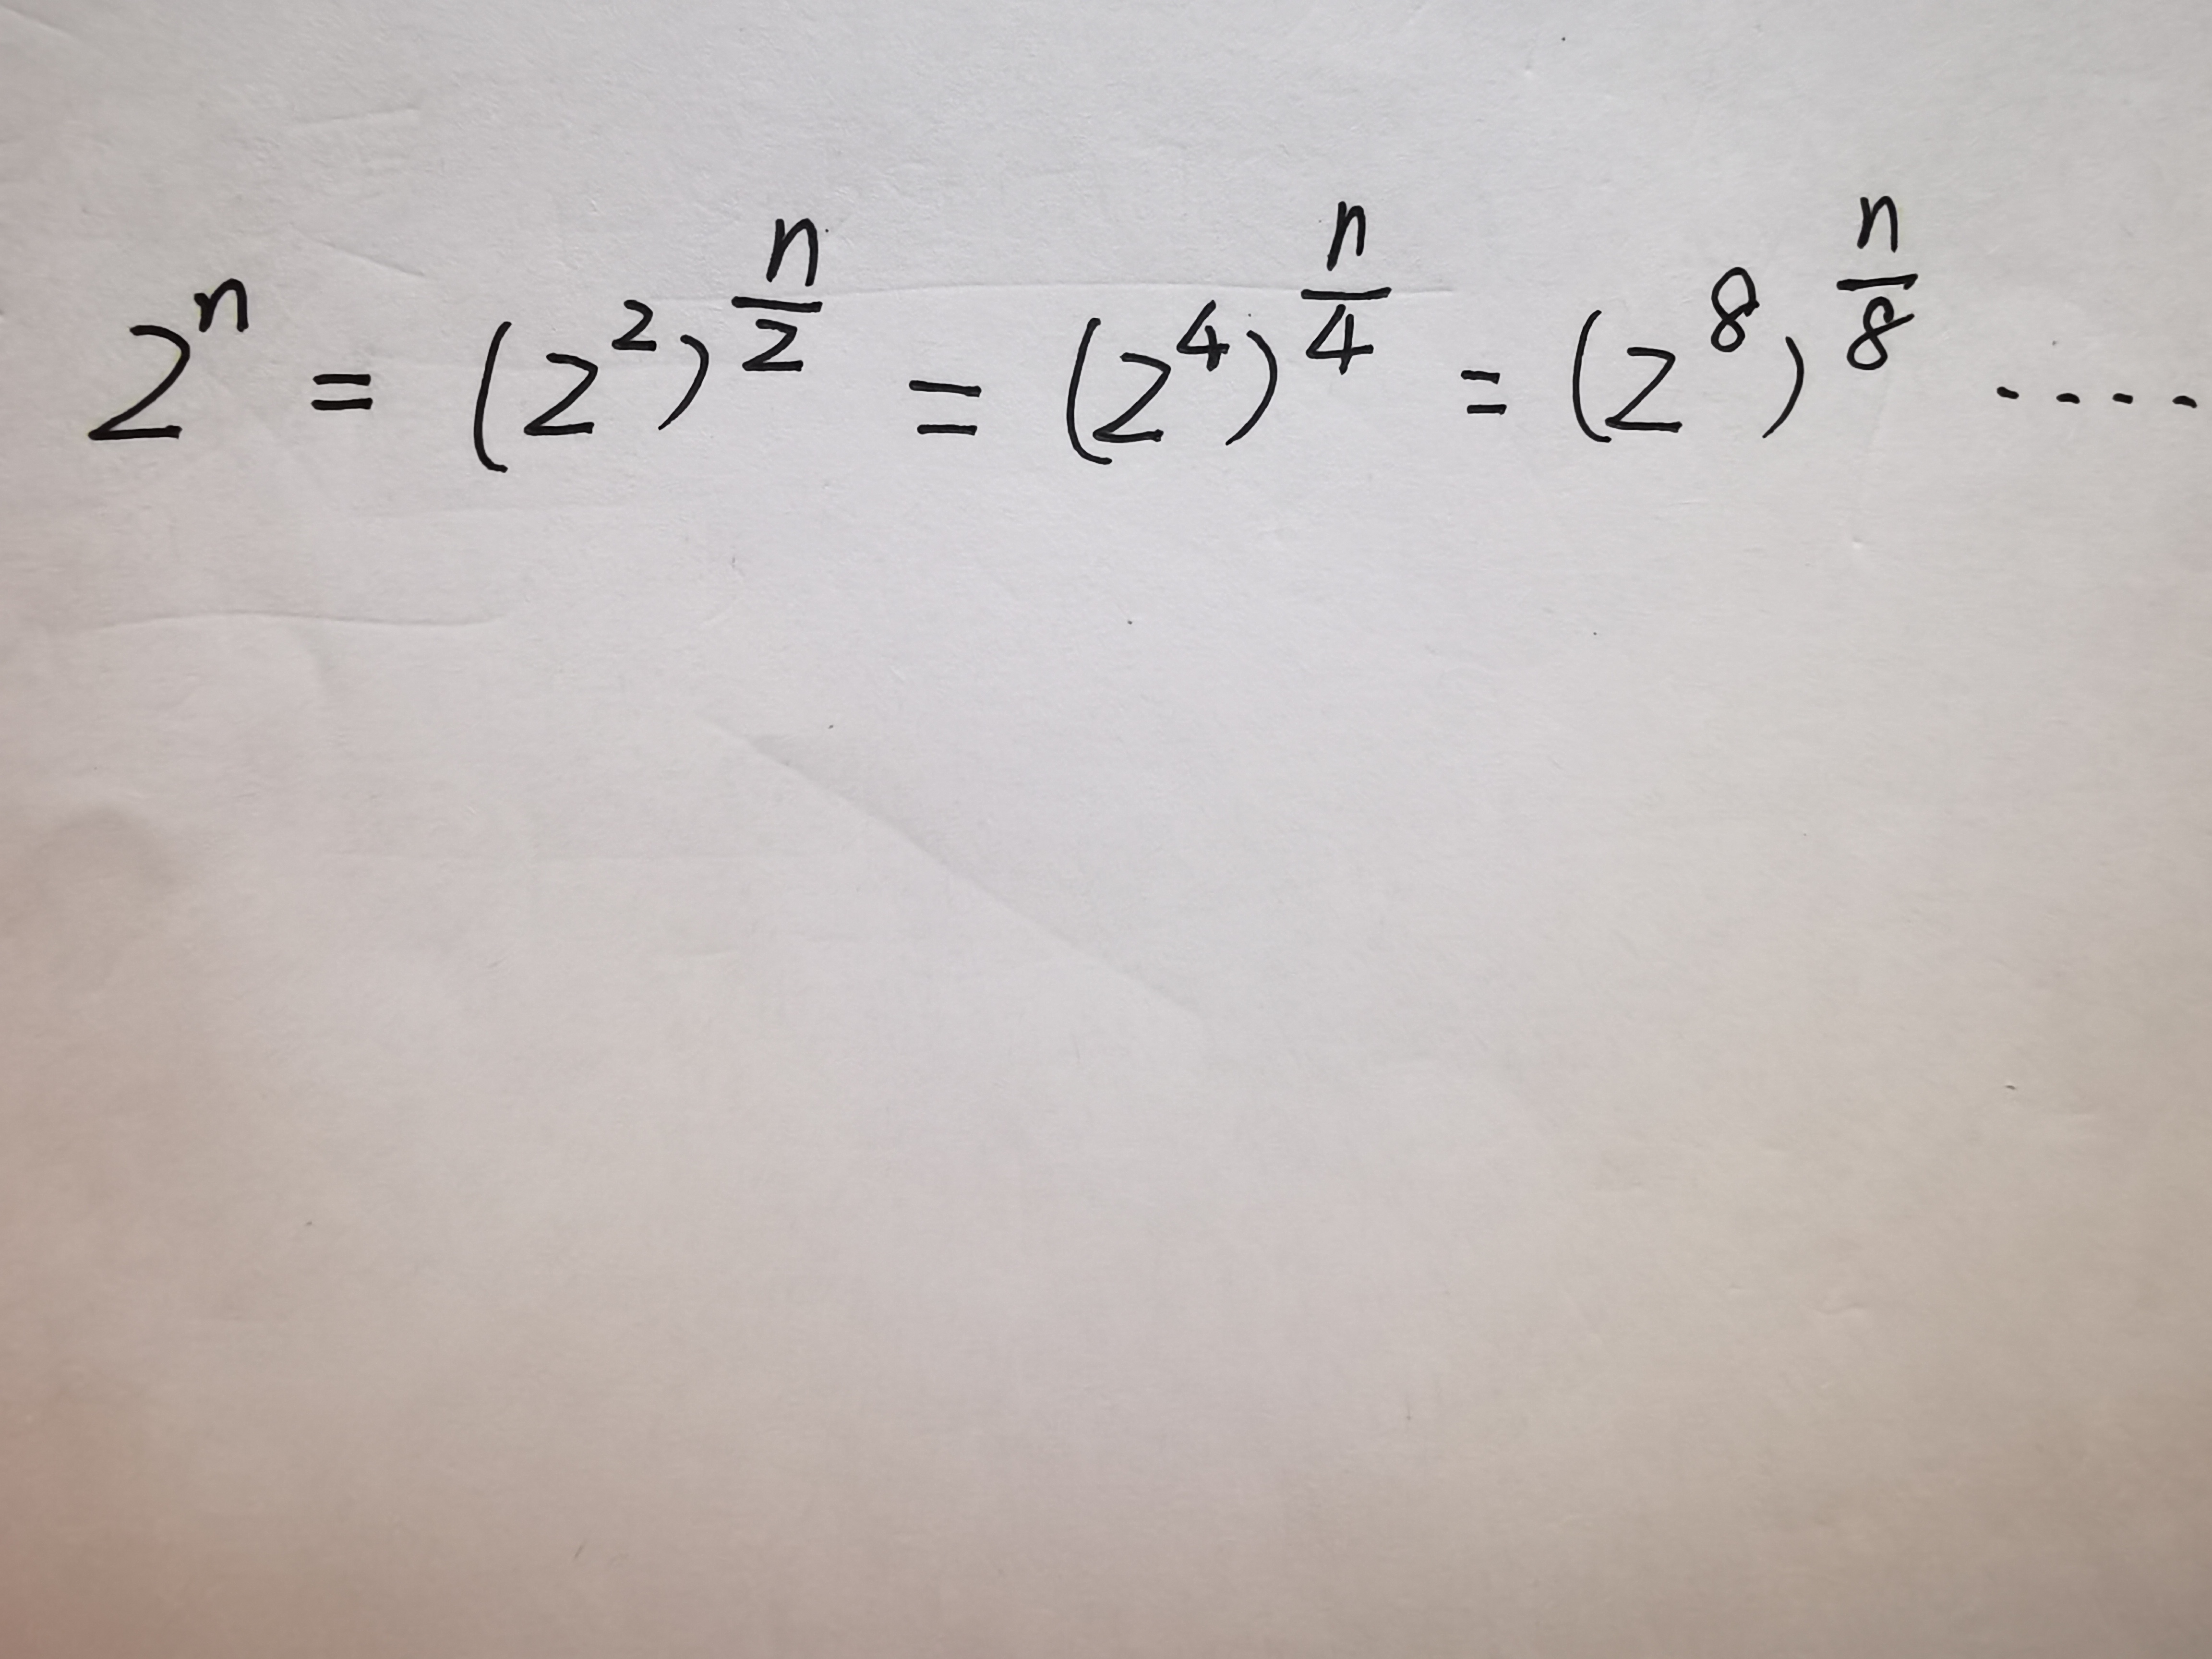 2^n = (2^2)^{n/2} = (2^4)^{n/4} = (2^8)^{n/8} ....